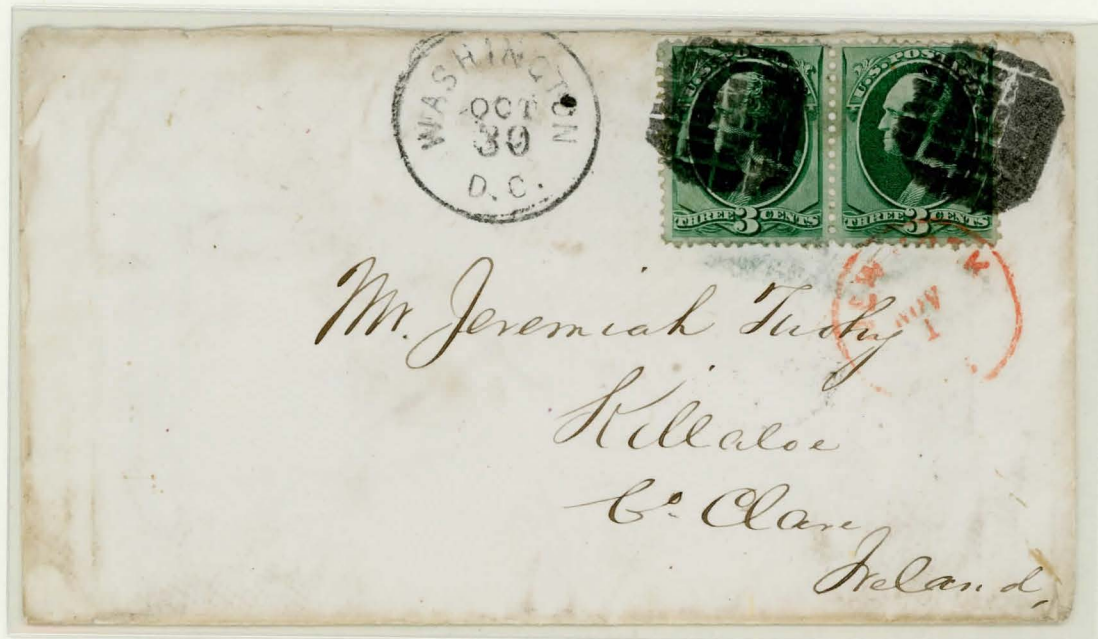 WASHINGTON
OCT
30
D.C.
U.S. POSTAGE
THREE 3 CENTS
U.S. POSTAGE
THREE 3 CENTS
NEW YORK
NOV
1
Mr. Jeremiah
Killaloe
Co. Clare
Ireland,